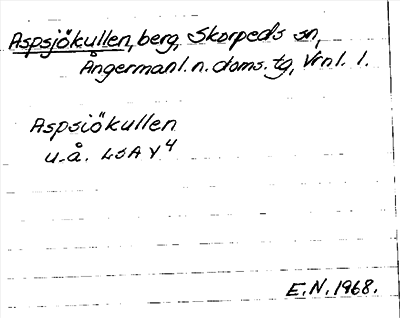 Aspsjökullen, berg, Skorpeds sn,
Ångermanl. n. doms. tg, Vrnl. l.
Aspsiökullen
u. å. LSA Y4
E. N. 1968.